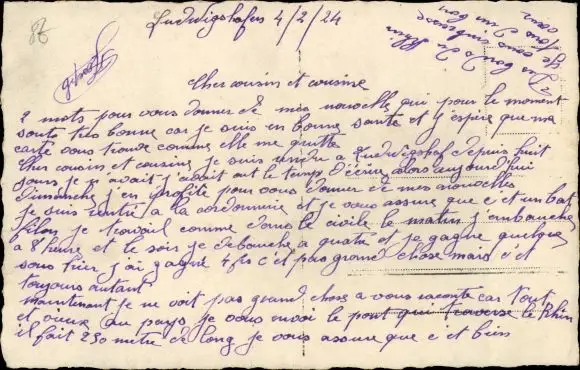 Ludwigshafen 4/2/24
Cher cousin et cousine
2 mots pour vous donner de mes nouvelle qui pour le moment
sante tres bonne car je suis en bonne sante et j espère que ma
carte vous trouve comme elle me quitte
Cher cousin et cousine je suis a Ludwigshaf depuis huit
jours je n avait le temps alors aujourdhui
Dimanche j'en profite pour vous donner de mes nouvelles
je suis rentré a la cordonnerie et je vous assure que c et un bat
filon je travail comme dans le civile le matin j'embauche
a 8 heure et le soir je debauche a quatre et je gagne quelques
sous hier j'ai gagné 4 frs c'et pas grand chose mais c'et
toujours autant
maintenant je ne voit pas grand chose a vous raconte car tout
et vieux au pays je vous envoi le pont qui traverse le Rhin
il fait 250 metre de long je vous assure que c et bien
Des bords du Rhin
Je vous embrasse
tous d un bon
cœur